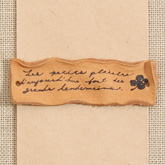 Les petits plaisirs
d'aujourd'hui font les
grands lendemains.